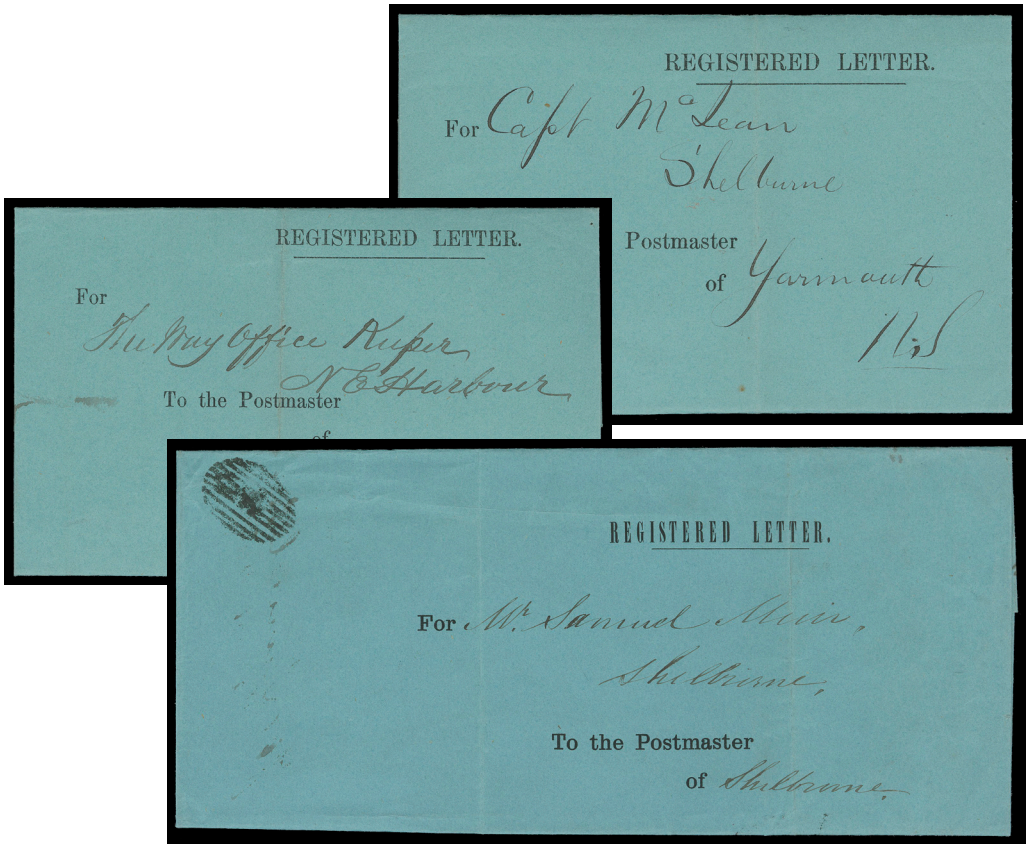 REGISTERED LETTER.
For Capt McLean
Shelburne
Postmaster
of Yarmouth
N.S
REGISTERED LETTER.
For
The Way Office Keeper
N E Harbour
To the Postmaster
of
REGISTERED LETTER.
For Mr. Samuel Muir,
Shelburne,
To the Postmaster
of Shelburne.